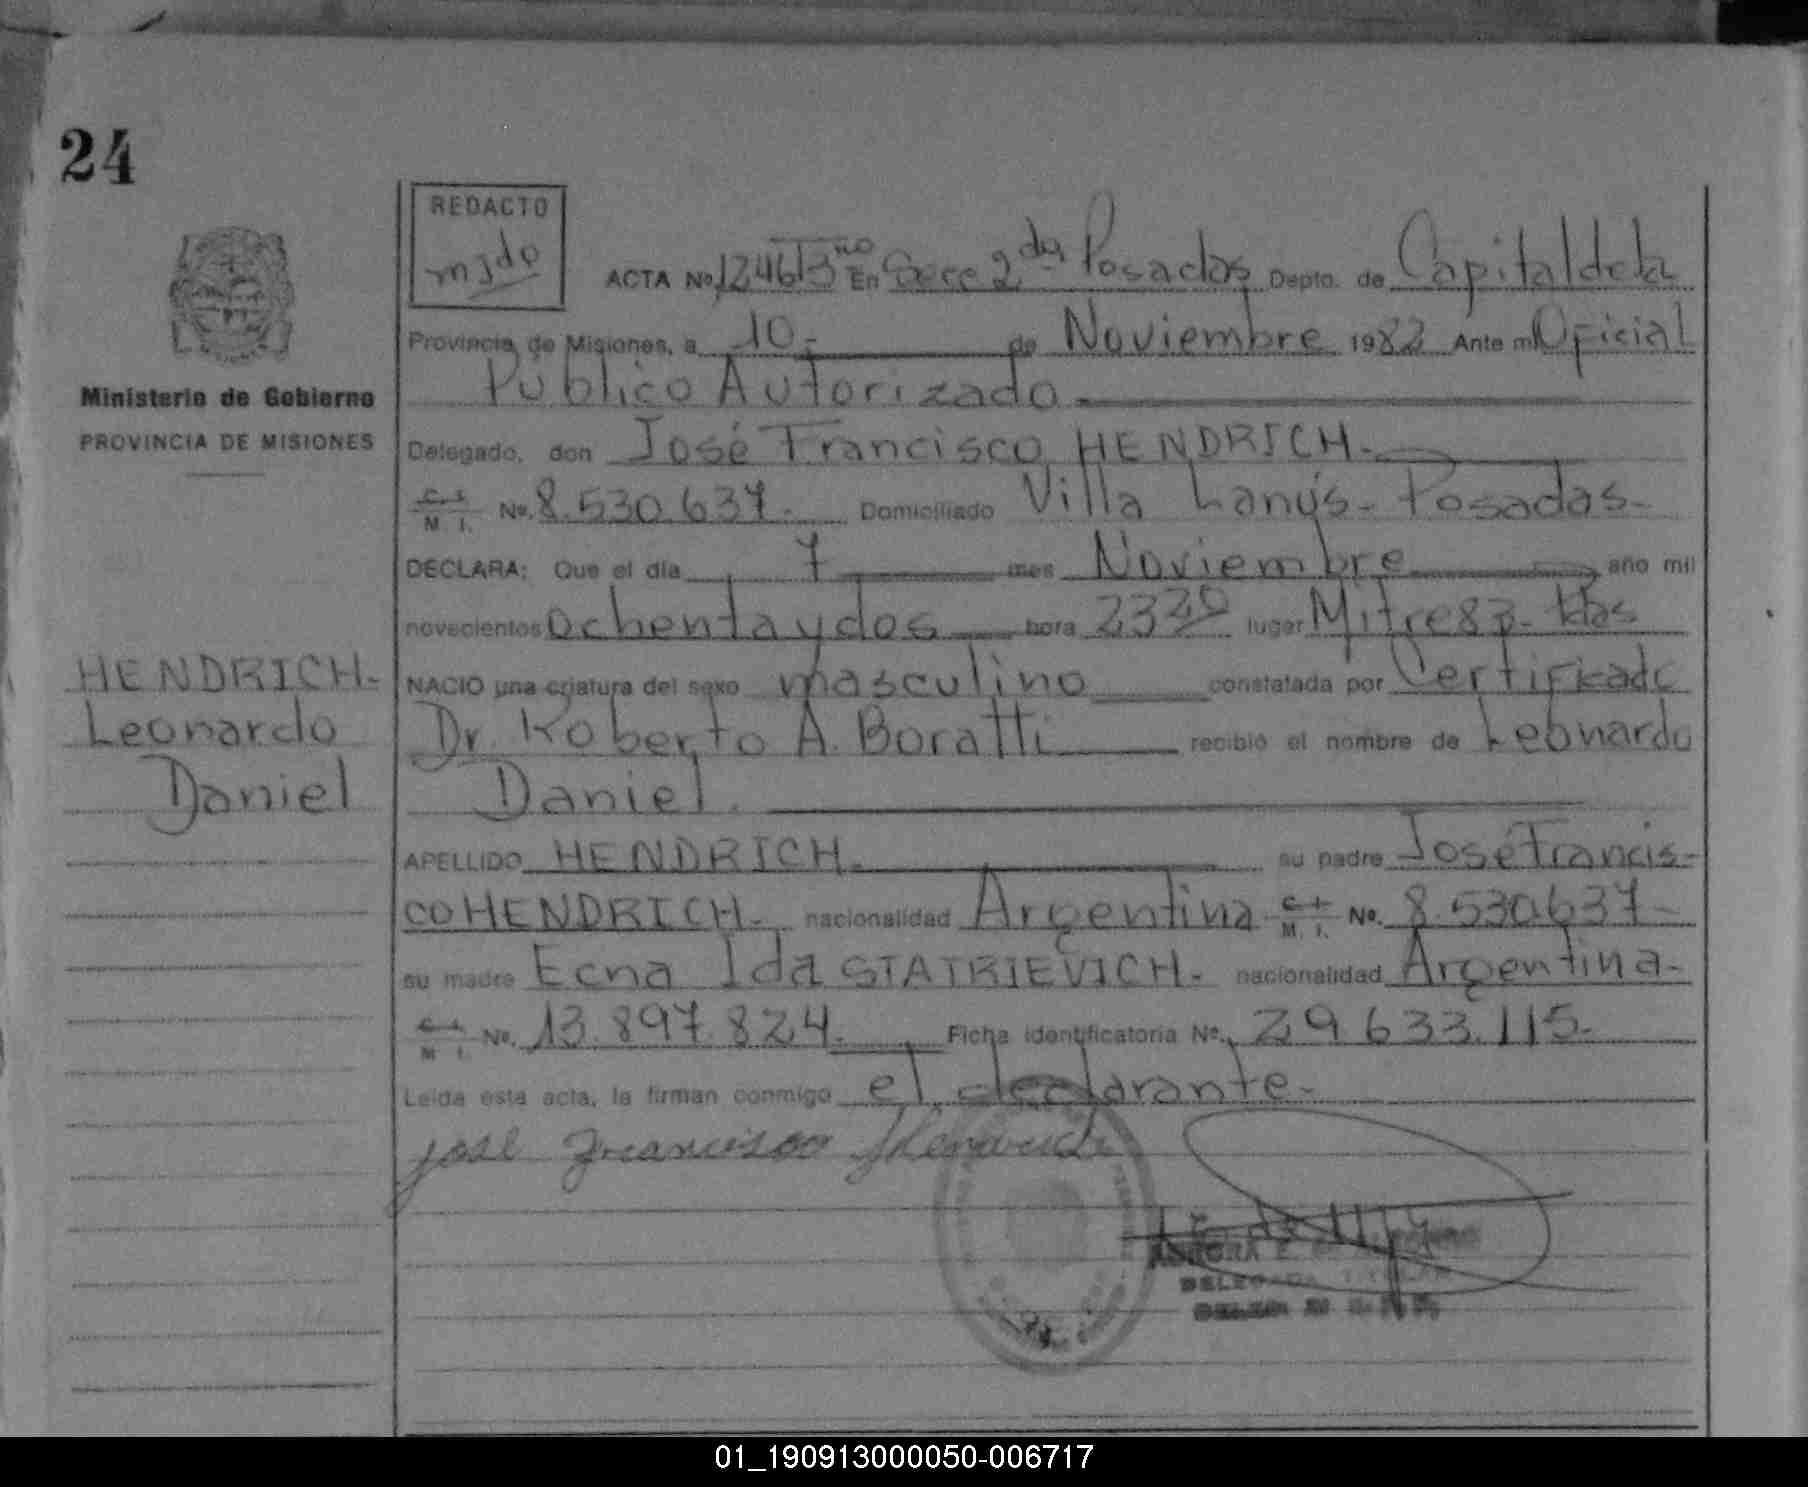 24
REDACTO
mjdo
ACTA No. 12461 3no En Secc 2da Posadas Depto. de Capital de la
Provincia de Misiones, a 10.- de Noviembre 1982 Ante mi Oficial
Público Autorizado
Ministerio de Gobierno
PROVINCIA DE MISIONES
Delegado, don José Francisco HENDRICH.-
C. I. M. I. No. 8.530.637.- Domiciliado Villa Lanús - Posadas-
DECLARA: Que el día 7 mes Noviembre año mil
novecientos ochenta y dos hora 2320 lugar Mitre 82-
HENDRICH-
Leonardo
Daniel
NACIO una criatura del sexo masculino constatada por Certificado
Dr. Roberto A. Boratti recibió el nombre de Leonardo
Daniel.
APELLIDO HENDRICH. su padre José Francis-
co HENDRICH.- nacionalidad Argentina C. I. M. I. No. 8.530.637-
su madre Ecna Ida STATRIEVICH.- nacionalidad Argentina-
C. I. M. I. No. 13.897.824.- Ficha identificatoria No. 29.633.115-
Leída esta acta, la firman conmigo el declarante-
José Francisco Hendrich
DELEGADA TITULAR
01_190913000050-006717